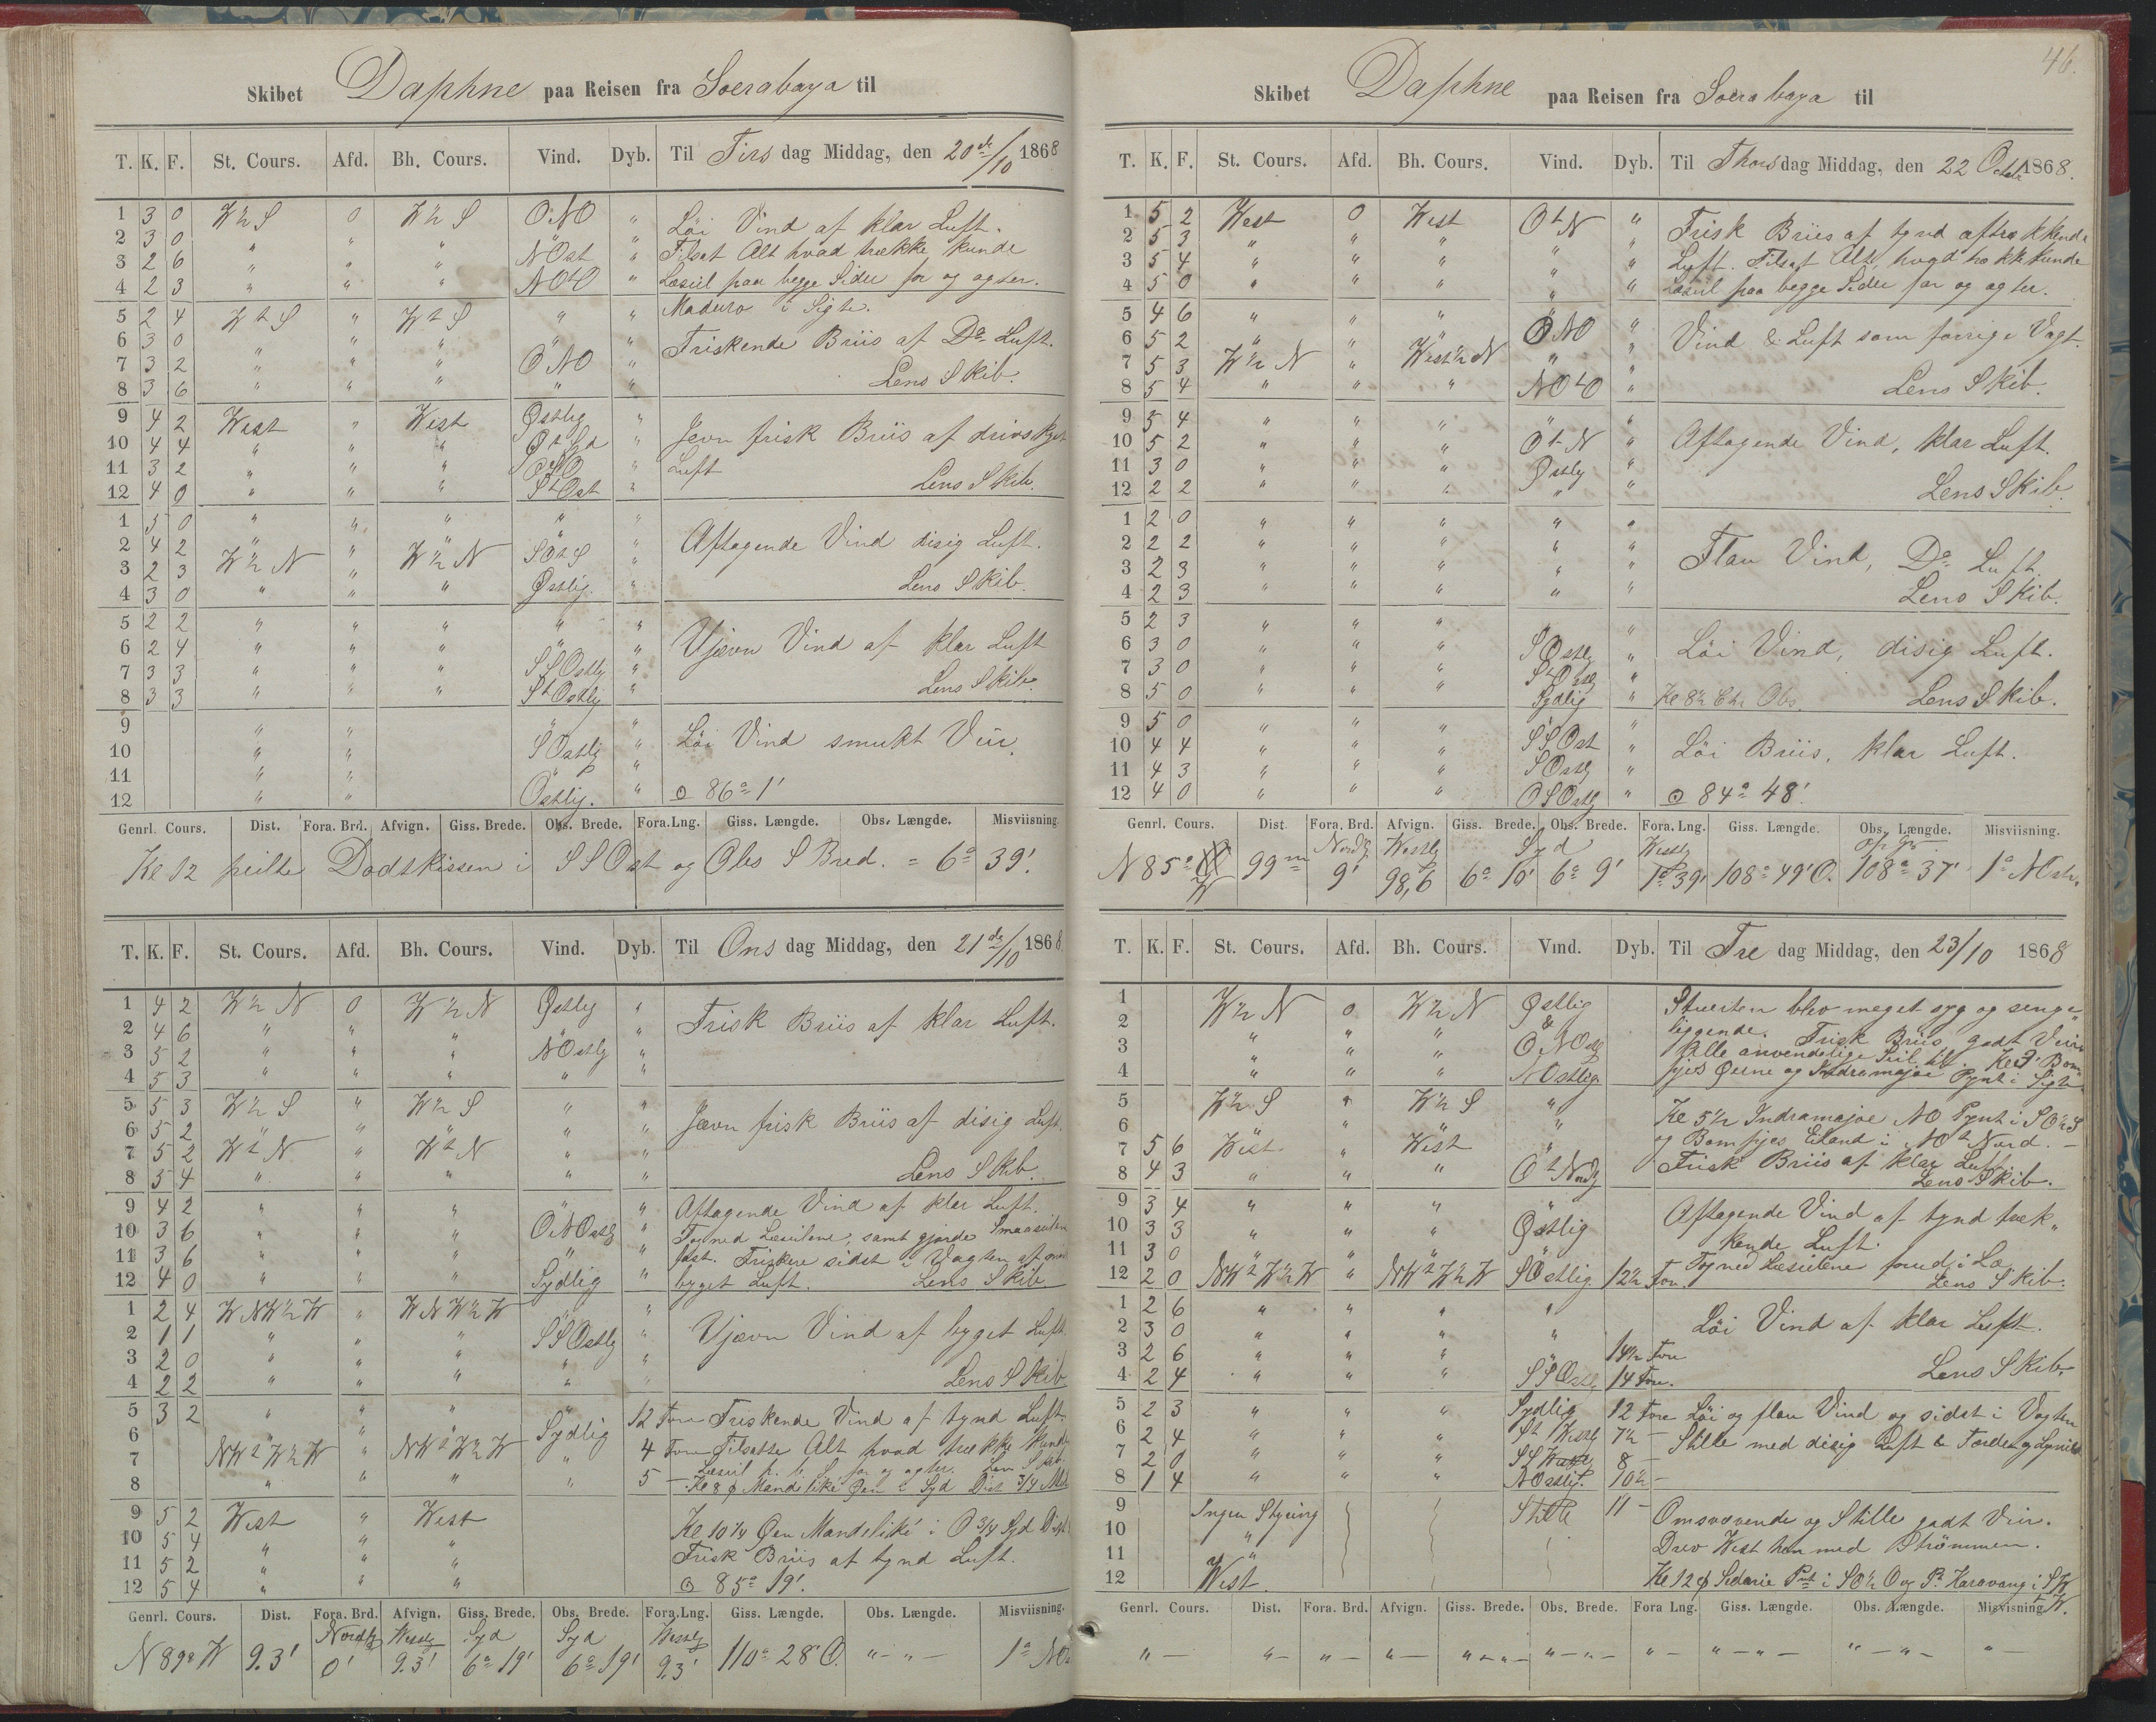 Skibet Daphne paa Reisen fra Soerabaya til
T. K. F. St. Cours. Afd. Bh. Cours. Vind. Dyb. Til Tirs dag Middag, den 20de/10 1868
1 3 0 W½S 0 W½S ONO " Löi Vind af klar Luft.
2 3 0 " " " NOst " Tilsat Alt hvad trække kunde
3 2 6 " " " " Læseil paa begge Sider for og agter.
4 2 3 " " " NOtO " Maduro i Sigte.
5 2 4 WtS " WtS " "
6 3 0 " " " " " Friskende Briis af Do Luft.
7 3 2 " " " ONO "
8 3 6 " " " " " Lens Skib.
9 4 2 West " West Østlig "
10 4 4 " " " " Jevn frisk Briis af
11 3 2 " " " OSO " Luft
12 4 0 " " " StOst " Lens Skib.
1 5 0 " " " " "
2 4 2 " " " " Aftagende Vind disig Luft.
3 2 3 W½N " W½N SOtS "
4 3 0 " " " Østlig. " Lens Skib.
5 2 2 " " " " "
6 2 4 " " " " Ujævn Vind af klar Luft
7 3 3 " " " SSOstlig "
8 3 3 " " " StOstlig " Lens Skib.
9 " " " "
10 " " SOstlig " Löi Vind smukt Veir.
11 " " "
12 " " Östlig. " ⊙ 86° 1'
Genrl. Cours. Dist. Fora. Brd. Afvign. Giss. Brede. Obs. Brede. Fora.Lng. Giss. Længde. Obs. Længde. Misviisning.
Kl 12 peilte Dodskissen i SSOst og Obs S Bred. = 6° 39'.
T. K. F. St. Cours. Afd. Bh. Cours. Vind. Dyb. Til Ons dag Middag, den 21de/10 1868
1 4 2 W½N 0 W½N Østlig "
2 4 6 " " " " " Frisk Briis af klar Luft.
3 5 2 " " " NOstlig "
4 5 3 " " " " "
5 5 3 W½S " W½S " "
6 5 2 " " " " " Jævn frisk Briis af disig Luft.
7 5 2 WtN " WtN " "
8 5 4 " " " " " Lens Skib.
9 4 2 " " " " " Aftagende Vind af klar Luft.
10 3 6 " " " ONOstlig " Tog ned Læseilene, samt gjorde Smaaseilene
11 3 6 " " " " " fast. Friskere sidst i Vagten af
12 4 0 " " " Sydlig " byget Luft. Lens Skib
1 2 4 WNW½W " WNW½W " "
2 1 1 " " " SSOstlig " Ujævn Vind af byget Luft
3 2 0 " " " " "
4 2 2 " " " " " Lens Skib
5 3 2 " " " " 12 Fvn Friskende Vind af tynd Luft.
6 " " " Sydlig 4 Fvn Tilsatte Alt hvad trække kunde
7 NWtW½W " NWtW½W " Læseil for og agter. Lens Skib.
8 " " " " 5 — Kl 8 p Mandelike Øen i Syd Dist 3/4 Mil
9 5 2 West " West
10 5 4 " " " Kl 10¼ Øen Mandeliké i O¾Syd
11 5 2 " " " Frisk Briis af tynd Luft.
12 5 4 " " " ⊙ 85° 19'.
Genrl. Cours. Dist. Fora. Brd. Afvign. Giss. Brede. Obs. Brede. Fora.Lng. Giss. Længde. Obs. Længde. Misviisning.
Nordlig Westlig Syd Syd Westlig
N 89° W 93' 0' 93' 6° 19' 6° 19' 93' 110° 28' O. " — " — 1°
46.
Skibet Daphne paa Reisen fra Soerabaya til
T. K. F. St. Cours. Afd. Bh. Cours. Vind. Dyb. Til Thorsdag Middag, den 22 Octob 1868.
1 5 2 West 0 West OtN "
2 5 3 " " " " " Frisk Briis af tynd
3 5 4 " " " " " Luft. Tilsat Alt, hvad trække kunde
4 5 0 " " " " " Læseil paa begge Sider for og agter.
5 4 6 " " " "
6 5 2 " " " ONO " Vind & Luft som forrige Vagt.
7 5 3 W½N " West½N " "
8 5 4 " " " NOtO " Lens Skib.
9 5 4 " " " " "
10 5 2 " " " OtN " Aftagende Vind, klar Luft.
11 3 0 " " " Østlig "
12 2 2 " " " " " Lens Skib.
1 2 0 " " " " "
2 2 2 " " " " "
3 2 3 " " " " " Flau Vind, Do Luft.
4 2 3 " " " " " Lens Skib.
5 2 3 " " " "
6 3 0 " " " SOstlig " Löi Vind, disig Luft.
7 3 0 " " " "
8 5 0 " " " Sydlig " Kl 8½ Chr Obs. Lens Skib.
9 5 0 " " " "
10 4 4 " " " SSOst " Löi Briis, klar Luft.
11 4 3 " " " SOstlig "
12 4 0 " " " OSOstlig " ⊙ 84° 48'.
Genrl. Cours. Dist. Fora. Brd. Afvign. Giss. Brede. Obs. Brede. Fora.Lng. Giss. Længde. Obs. Længde. Misviisning.
Nordlig Westlig Syd Westlig
N 85° W 99m 9' 98,6 6° 10' 6° 9' 1° 39' 108° 49' O. 108° 37' 1° NOstv.
T. K. F. St. Cours. Afd. Bh. Cours. Vind. Dyb. Til Fre dag Middag, den 23/10 1868
1 W½N 0 W½N Østlig Stuerten blev meget syg og senge„
2 " " " & liggende. Frisk Briis godt Veir
3 " " " ONOstlig Alle anvendelige Seil til. Kl 3 Bom„
4 " " " NOstlig. pjes Øerne og Indramajoe Pynt i Sigte
5 W½S " W½S "
6 " " " Kl 5½ Indramajoe NO Pynt i SO½S
7 5 6 West " West " og Bompjes Eiland i NOtNord. —
8 4 3 " " " OtNordlg Frisk Briis af klar Luft. Lens Skib.
9 3 4 " " " " Aftagende Vind af tynd træk„
10 3 3 " " " Østlig kende Luft.
11 3 0 " " " " Tog ned Læseilene forud i Læ.
12 2 0 NWtW½W " NWtW½W SOstlig 12½ Fvn. Lens Skib.
1 2 6 " " " "
2 3 0 " " " " Löi Vind af klar Luft.
3 2 6 " " " " 14½ Fvn
4 2 4 " " " SSOstlg 14 Fvn. Lens Skib.
5 2 3 " " " Sydlig 12 Fvn Löi og flau Vind og sidst i Vagten
6 2 4 " " " StWestlg 7½ — Stille med disig Luft & Torden og Lynild
7 2 0 " " " SSWestlg 8 —
8 1 4 " " " NOstlig. 10½ —
9 Ingen Styring Stille 11 — Omsvævende og Stille godt Veir.
10 " Drev West hen med Strömmen.
11 "
12 West. Kl 12 p Sedarie Pnt i SO½O og Pt Karavang i SW
Genrl. Cours. Dist. Fora. Brd. Afvign. Giss. Brede. Obs. Brede. Fora Lng. Giss. Længde. Obs. Længde. Misvisning
" — " — " — " — " — " — " — " — " — " — " — " — " —